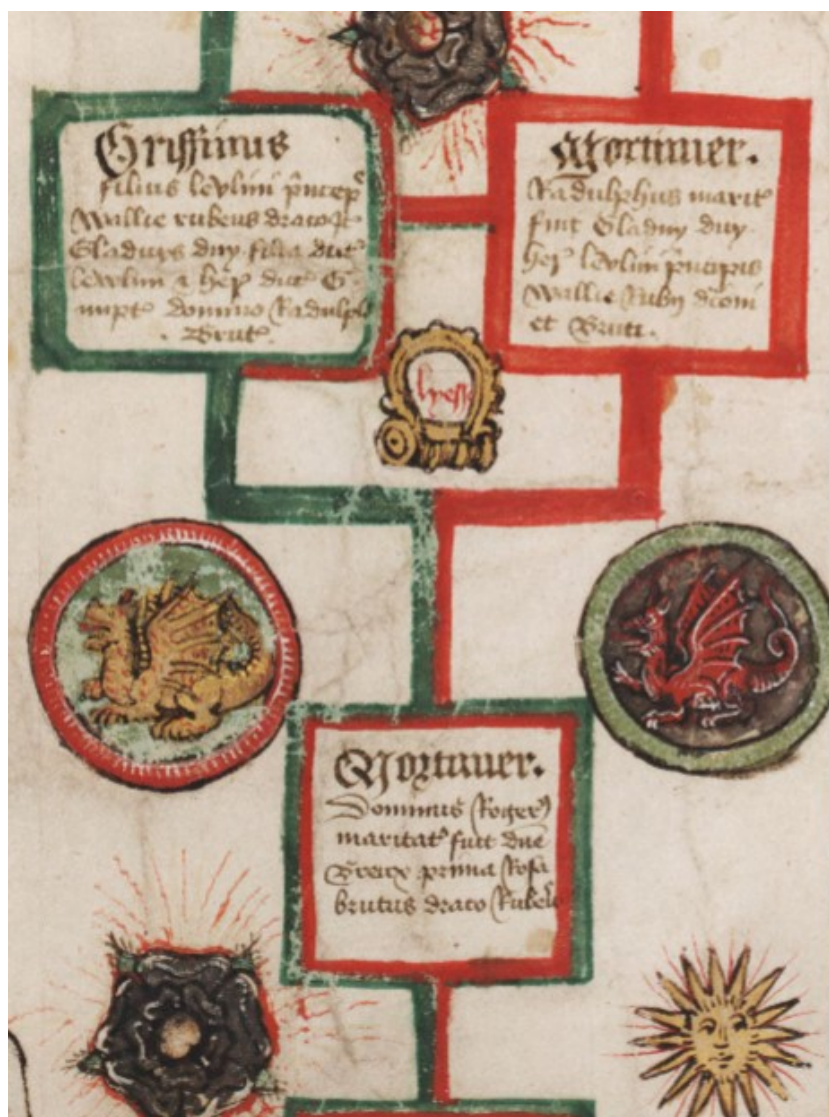 Griffinus
filius levlini p̄ncep⁹
Wallie rubeus draco
Gladuys duy filia dict
lewlini ⁊ hep̄ dict G
nupt⁹ domino Radulpho
Brut⁹
Mortimer.
Radulphus marit⁹
fuit Gladuy duy
hep̄ levlini p̄ncipis
Wallie Rubij
et Bruti.
Mortimer.
Dominus Roger⁹
maritat⁹ fuit dn̄e
prima Rosa
brutus draco Rube⁹